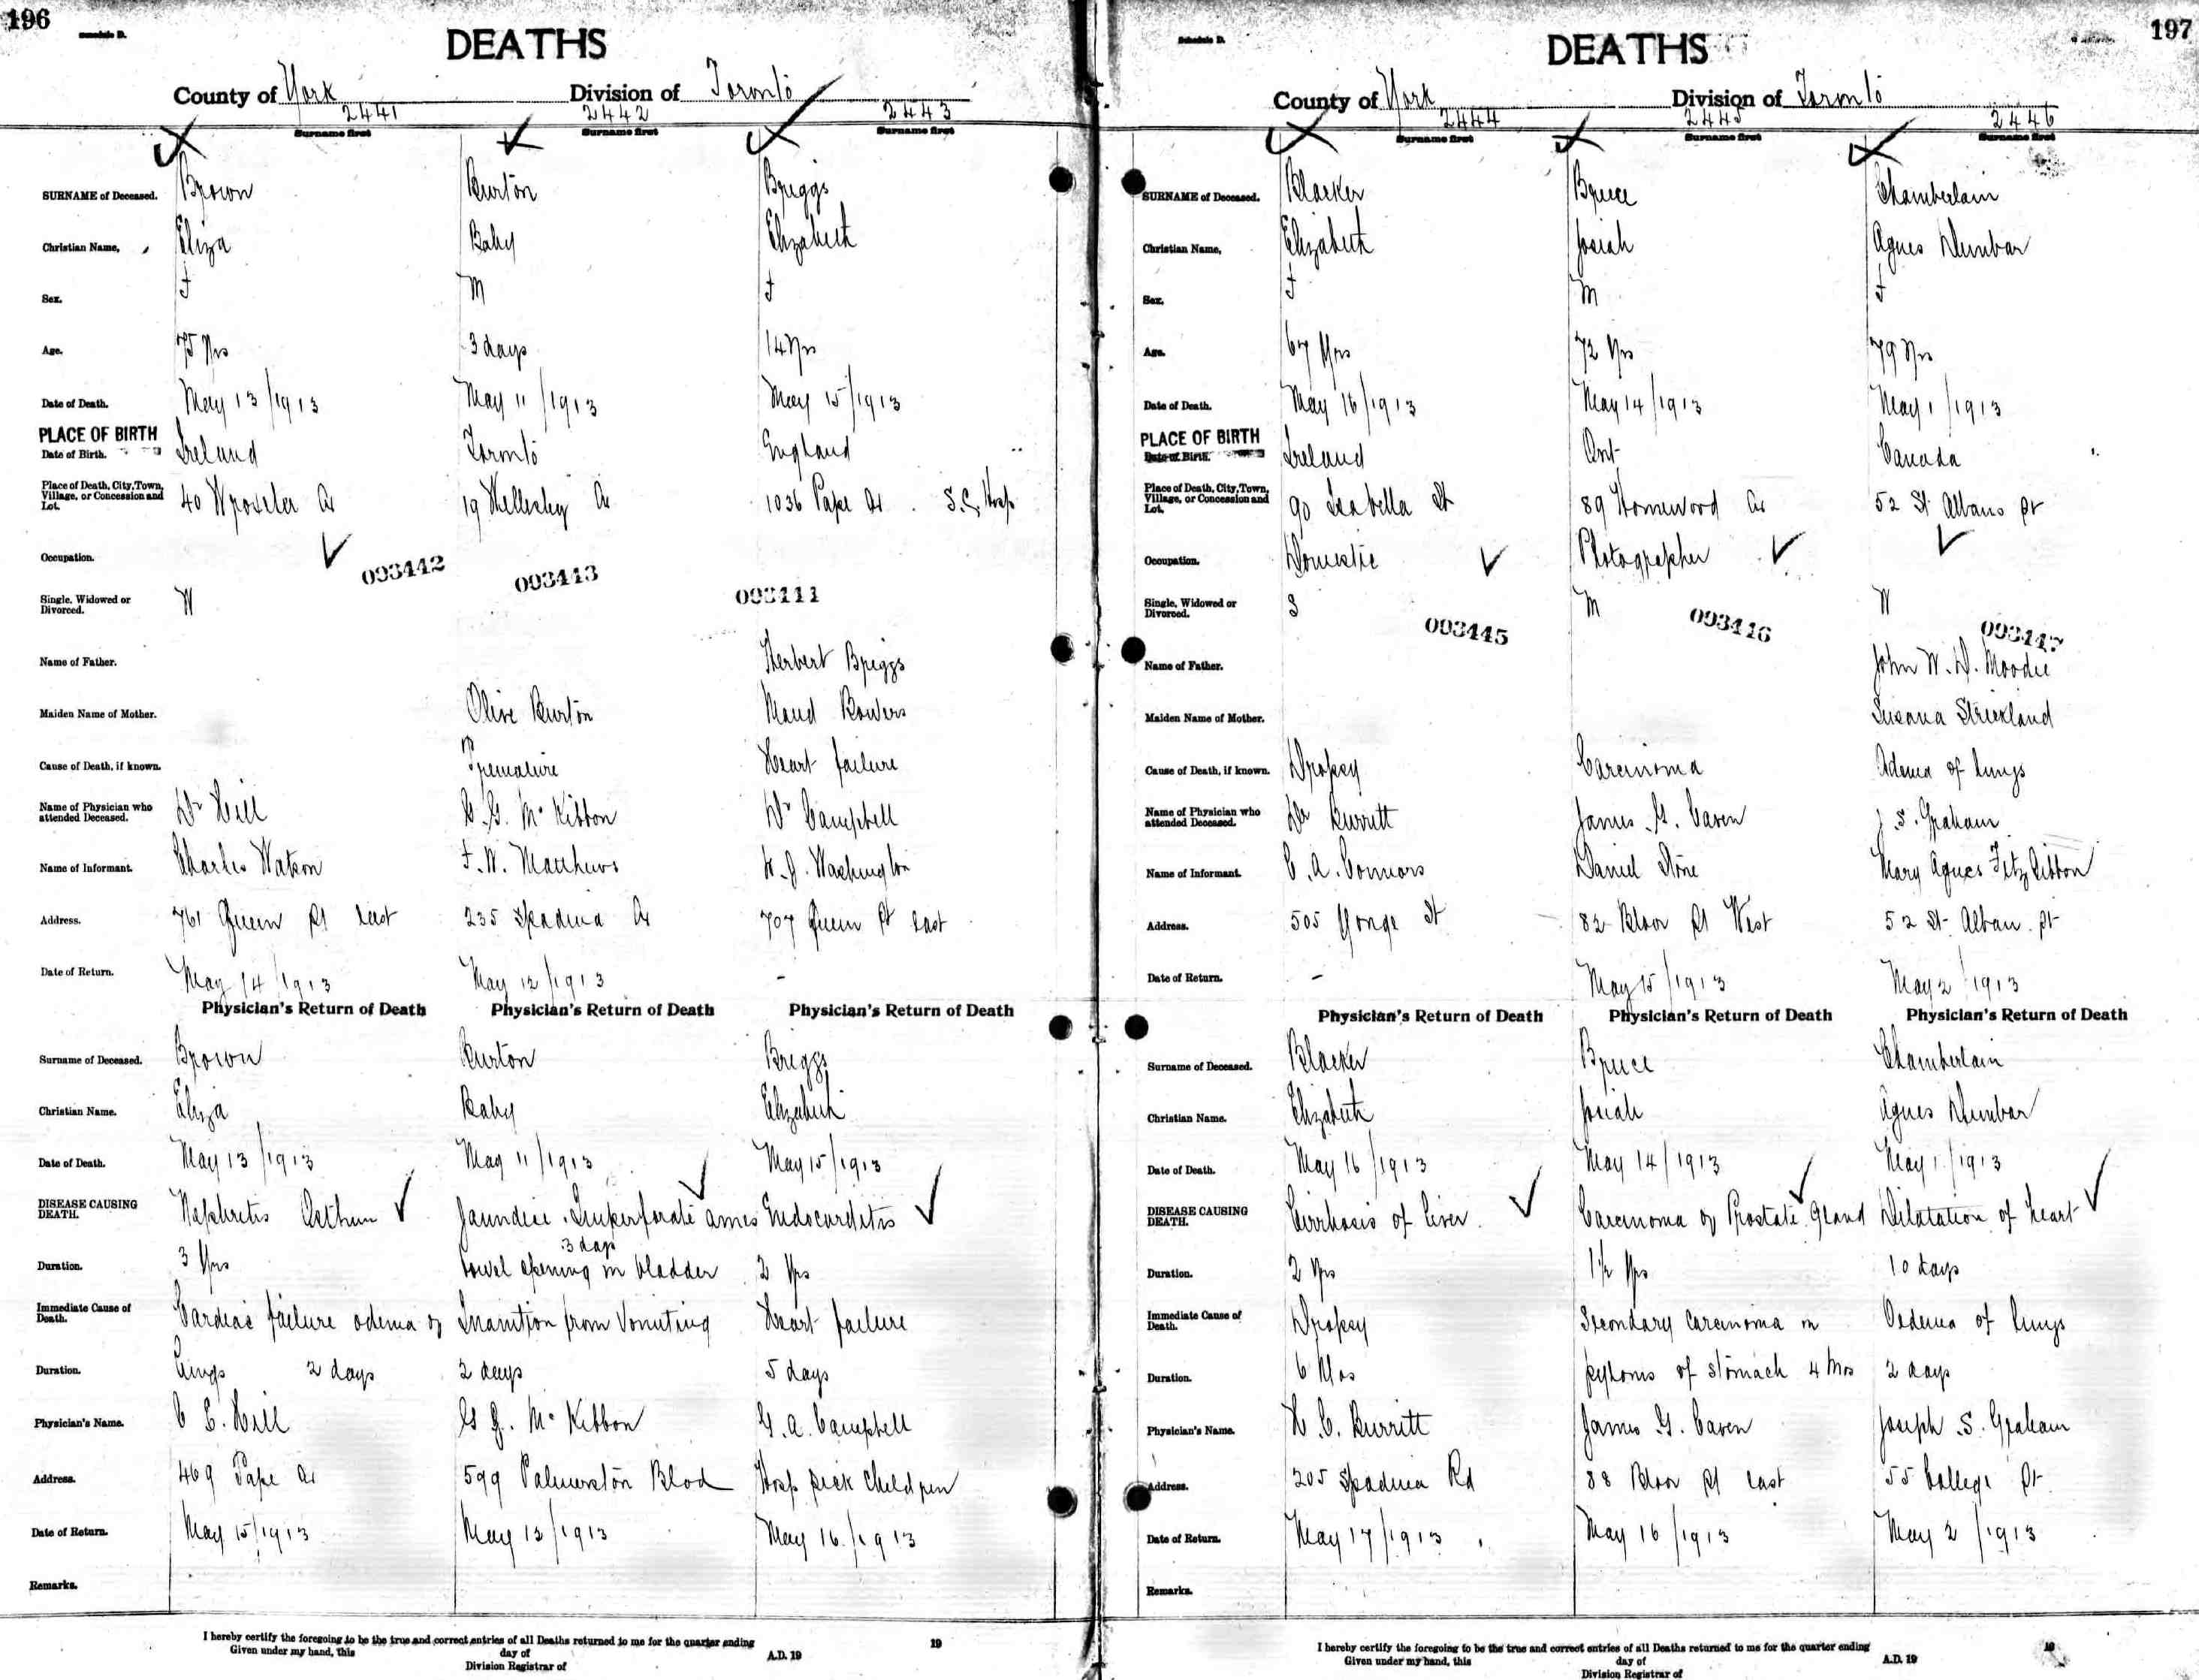 196
DEATHS
County of York Division of Toronto
2441 2442 2443
Surname first Surname first Surname first
SURNAME of Deceased. Brown Burton Briggs
Christian Name, Eliza Baby Elizabeth
Sex. F M F
Age. 75 Yrs 3 days 14 Yrs
Date of Death. May 13/1913 May 11/1913 May 15/1913
PLACE OF BIRTH
Date of Birth. Ireland Toronto England
Place of Death, City, Town, Village, or Concession and Lot. 40 Wroxeter Av 19 Wellesley Av 1036 Pape Av. S.C. Hosp
Occupation.
093442 093443 093444
Single, Widowed or Divorced. W
Name of Father. Herbert Briggs
Maiden Name of Mother. Olive Burton Maud Bowers
Cause of Death, if known. Premature Heart failure
Name of Physician who attended Deceased. Dr Hill G. G. McKibbon Dr Campbell
Name of Informant. Charles Watson F. W. Matthews W. J. Washington
Address. 761 Queen St East 235 Spadina Av 707 Queen St East
Date of Return. May 14/1913 May 12/1913 -
Physician's Return of Death Physician's Return of Death Physician's Return of Death
Surname of Deceased. Brown Burton Briggs
Christian Name. Eliza Baby Elizabeth
Date of Death. May 13/1913 May 11/1913 May 15/1913
DISEASE CAUSING DEATH. Nephritis Asthma Jaundice. Imperforate anus Endocarditis
3 days
Duration. 3 Yrs bowel opening in bladder 2 Yrs
Immediate Cause of Death. Cardiac failure odema of Inanition from Vomiting Heart failure
Duration. Lungs 2 days 2 days 5 days
Physician's Name. C C. Hill G G. McKibbon G. A. Campbell
Address. 469 Pape Av 599 Palmerston Blvd Hosp Sick Children
Date of Return. May 15/1913 May 12/1913 May 16/1913
Remarks.
I hereby certify the foregoing to be the true and correct entries of all Deaths returned to me for the quarter ending 19
Given under my hand, this day of A.D. 19
Division Registrar of
197
Schedule D.
DEATHS
County of York Division of Toronto
2444 2445 2446
Surname first Surname first Surname first
SURNAME of Deceased. Blacker Bruce Chamberlain
Christian Name, Elizabeth Josiah Agnes Dunbar
Sex. F M F
Age. 67 Yrs 72 Yrs 79 Yrs
Date of Death. May 16/1913 May 14/1913 May 1/1913
PLACE OF BIRTH
Date of Birth. Ireland Ont Canada
Place of Death, City, Town, Village, or Concession and Lot. 90 Isabella St 89 Homewood Av 52 St Albans St
Occupation. Domestic Photographer
Single, Widowed or Divorced. S M W
093445 093446 093447
Name of Father. John W. D. Moodie
Maiden Name of Mother. Susana Strickland
Cause of Death, if known. Dropsy Carcinoma Odema of Lungs
Name of Physician who attended Deceased. Dr Burritt James G. Caven J. S. Graham
Name of Informant. C. A. Connors Daniel Stone Mary Agnes FitzGibbon
Address. 505 Yonge St 82 Bloor St West 52 St Alban St
Date of Return. - May 15/1913 May 2/1913
Physician's Return of Death Physician's Return of Death Physician's Return of Death
Surname of Deceased. Blacker Bruce Chamberlain
Christian Name. Elizabeth Josiah Agnes Dunbar
Date of Death. May 16/1913 May 14/1913 May 1/1913
DISEASE CAUSING DEATH. Cirrhosis of Liver Carcinoma of Prostate Gland Dilatation of heart
Duration. 2 Yrs 1½ Yrs 10 days
Immediate Cause of Death. Dropsy Secondary Carcinoma in Oedema of Lungs
Duration. 6 Mos pylorus of stomach 4 Mos 2 days
Physician's Name. H. C. Burritt James G. Caven Joseph S. Graham
Address. 205 Spadina Rd 88 Bloor St East 55 College St
Date of Return. May 17/1913 May 16/1913 May 2/1913
Remarks.
I hereby certify the foregoing to be the true and correct entries of all Deaths returned to me for the quarter ending 19
Given under my hand, this day of A.D. 19
Division Registrar of